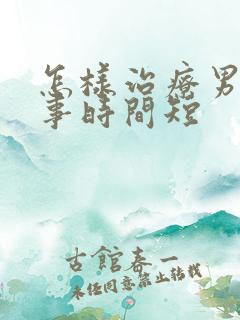 怎樣治療男
事時間短
古館春一
未经同意禁止转载